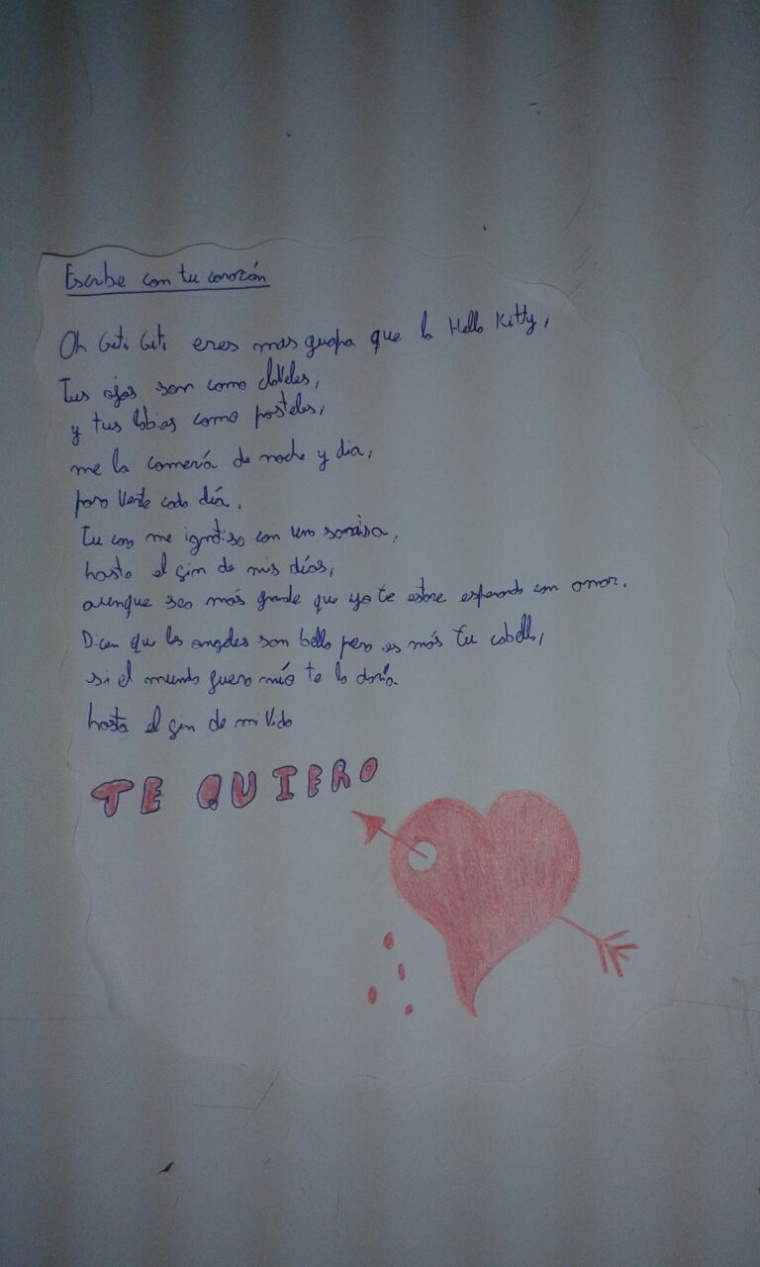 Escribe con tu corazón
Oh Geti Geti eres mas guapa que la Hello Kitty,
Tus ojos son como claveles,
y tus labios como pasteles,
me la comería de noche y dia,
para verte cada día.
Tu cara me ignotiza con una sonrisa,
hasta el fin de mis días,
aunque sea más grande que yo te estare esperando con amor.
Dicen que los angeles son bello pero es más tu cabello,
si el mundo fuera mío te lo daría
hasta el fin de mi vida
TE QUIERO